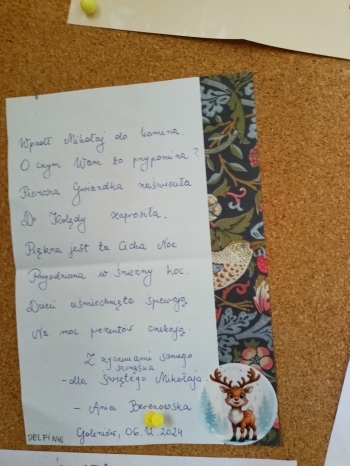 Wpadł Mikołaj do komina.
O czym Wam to przypomina?
Pierwsza Gwiazdka zaświeciła
Do Kolędy zaprosiła.
Piękna jest ta Cicha Noc
Przyodziana w śnieżny koc.
Dzieci uśmiechnięte śpiewają
Na moc prezentów czekają
Z życzeniami samego
szczęścia
- dla Świętego Mikołaja
- Ania Berezowska
Goleniów, 06.12.2024
DELFINKI